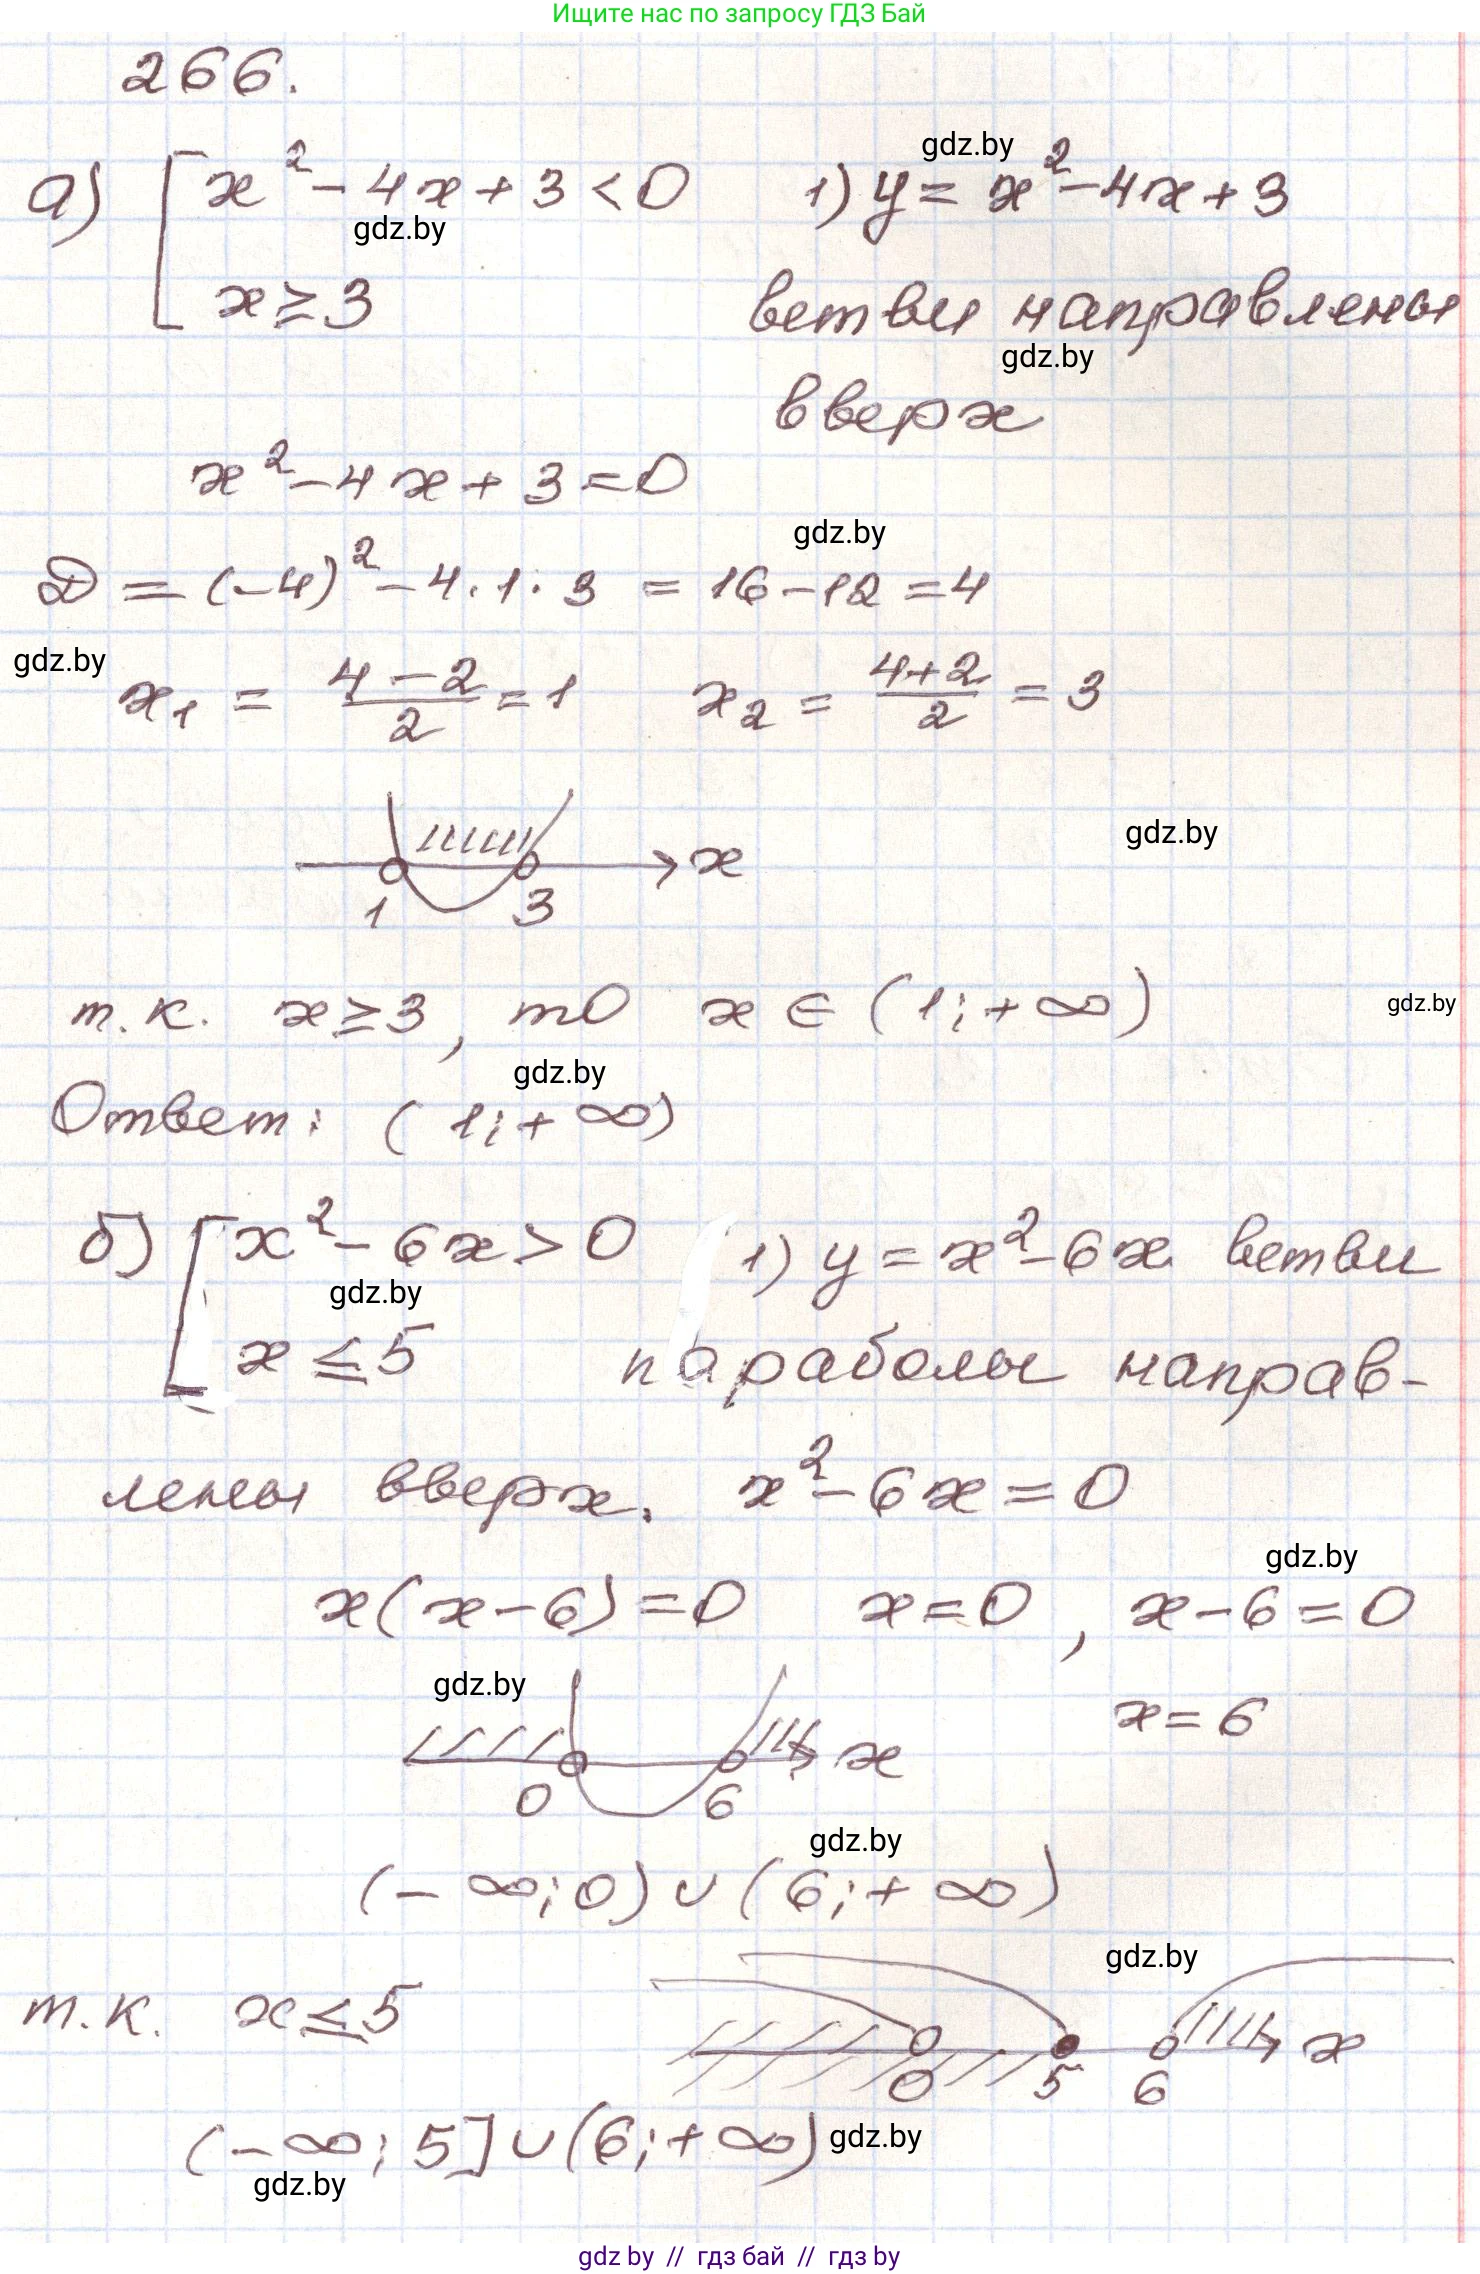 Ищите нас по запросу ГДЗ Бай
266.
а) [ x² - 4x + 3 < 0    1) y = x² - 4x + 3
gdz.by
gdz.by
x ≥ 3    ветви направлены
gdz.by
вверх
x² - 4x + 3 = 0
gdz.by
D = (-4)² - 4·1·3 = 16 - 12 = 4
gdz.by
x₁ = (4 - 2)/2 = 1    x₂ = (4+2)/2 = 3
gdz.by
x
1    3
т.к. x ≥ 3, то x ∈ (1; +∞)
gdz.by
gdz.by
Ответ: (1; +∞)
б) [ x² - 6x > 0    1) y = x² - 6x ветви
gdz.by
x ≤ 5    параболы направ-
лены вверх. x² - 6x = 0
gdz.by
x(x - 6) = 0    x = 0, x - 6 = 0
gdz.by
x = 6
x
0    6
gdz.by
(-∞; 0) ∪ (6; +∞)
gdz.by
т.к. x ≤ 5    x
0    5    6
(-∞; 5] ∪ (6; +∞)
gdz.by
gdz.by
gdz by // гдз бай // гдз by